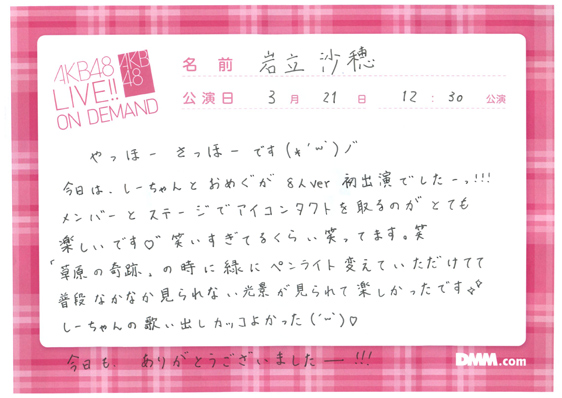 AKB48
LIVE!!
ON DEMAND
AKB
48
名前 岩立 沙穂
公演日 3月 21日 12:30 公演
やっほー さっほーです(*'ω')ﾉ
今日は、しーちゃんとおめぐが 8人ver 初出演でしたーっ!!!
メンバーとステージでアイコンタクトを取るのがとても
楽しいです♡ 笑いすぎてるくらい笑ってます。笑
「草原の奇跡」の時に緑にペンライト変えていただけてて
普段なかなか見られない光景が見られて楽しかったです✧✧
しーちゃんの歌い出しカッコよかった('ω')♡
今日も、ありがとうございましたー!!!
DMM.com